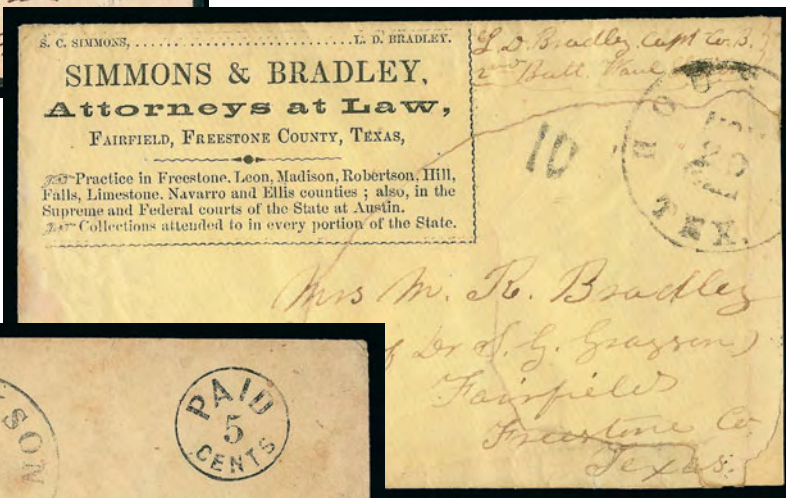 S. C. SIMMONS, . . . . . . . . . . . . . . . . . . . . . . . . . . . . . . . L. D. BRADLEY.
SIMMONS & BRADLEY,
Attorneys at Law,
FAIRFIELD, FREESTONE COUNTY, TEXAS,
Practice in Freestone, Leon, Madison, Robertson, Hill,
Falls, Limestone, Navarro and Ellis counties ; also, in the
Supreme and Federal courts of the State at Austin.
Collections attended to in every portion of the State.
L. D. Bradley Capt Co. B.
2nd Batt. Waul
10
HOUS
TEX.
Mrs M. R. Bradley
Dr S. G. Grayson)
Fairfield
Freestone Co
Texas.
SON
PAID
5
CENTS